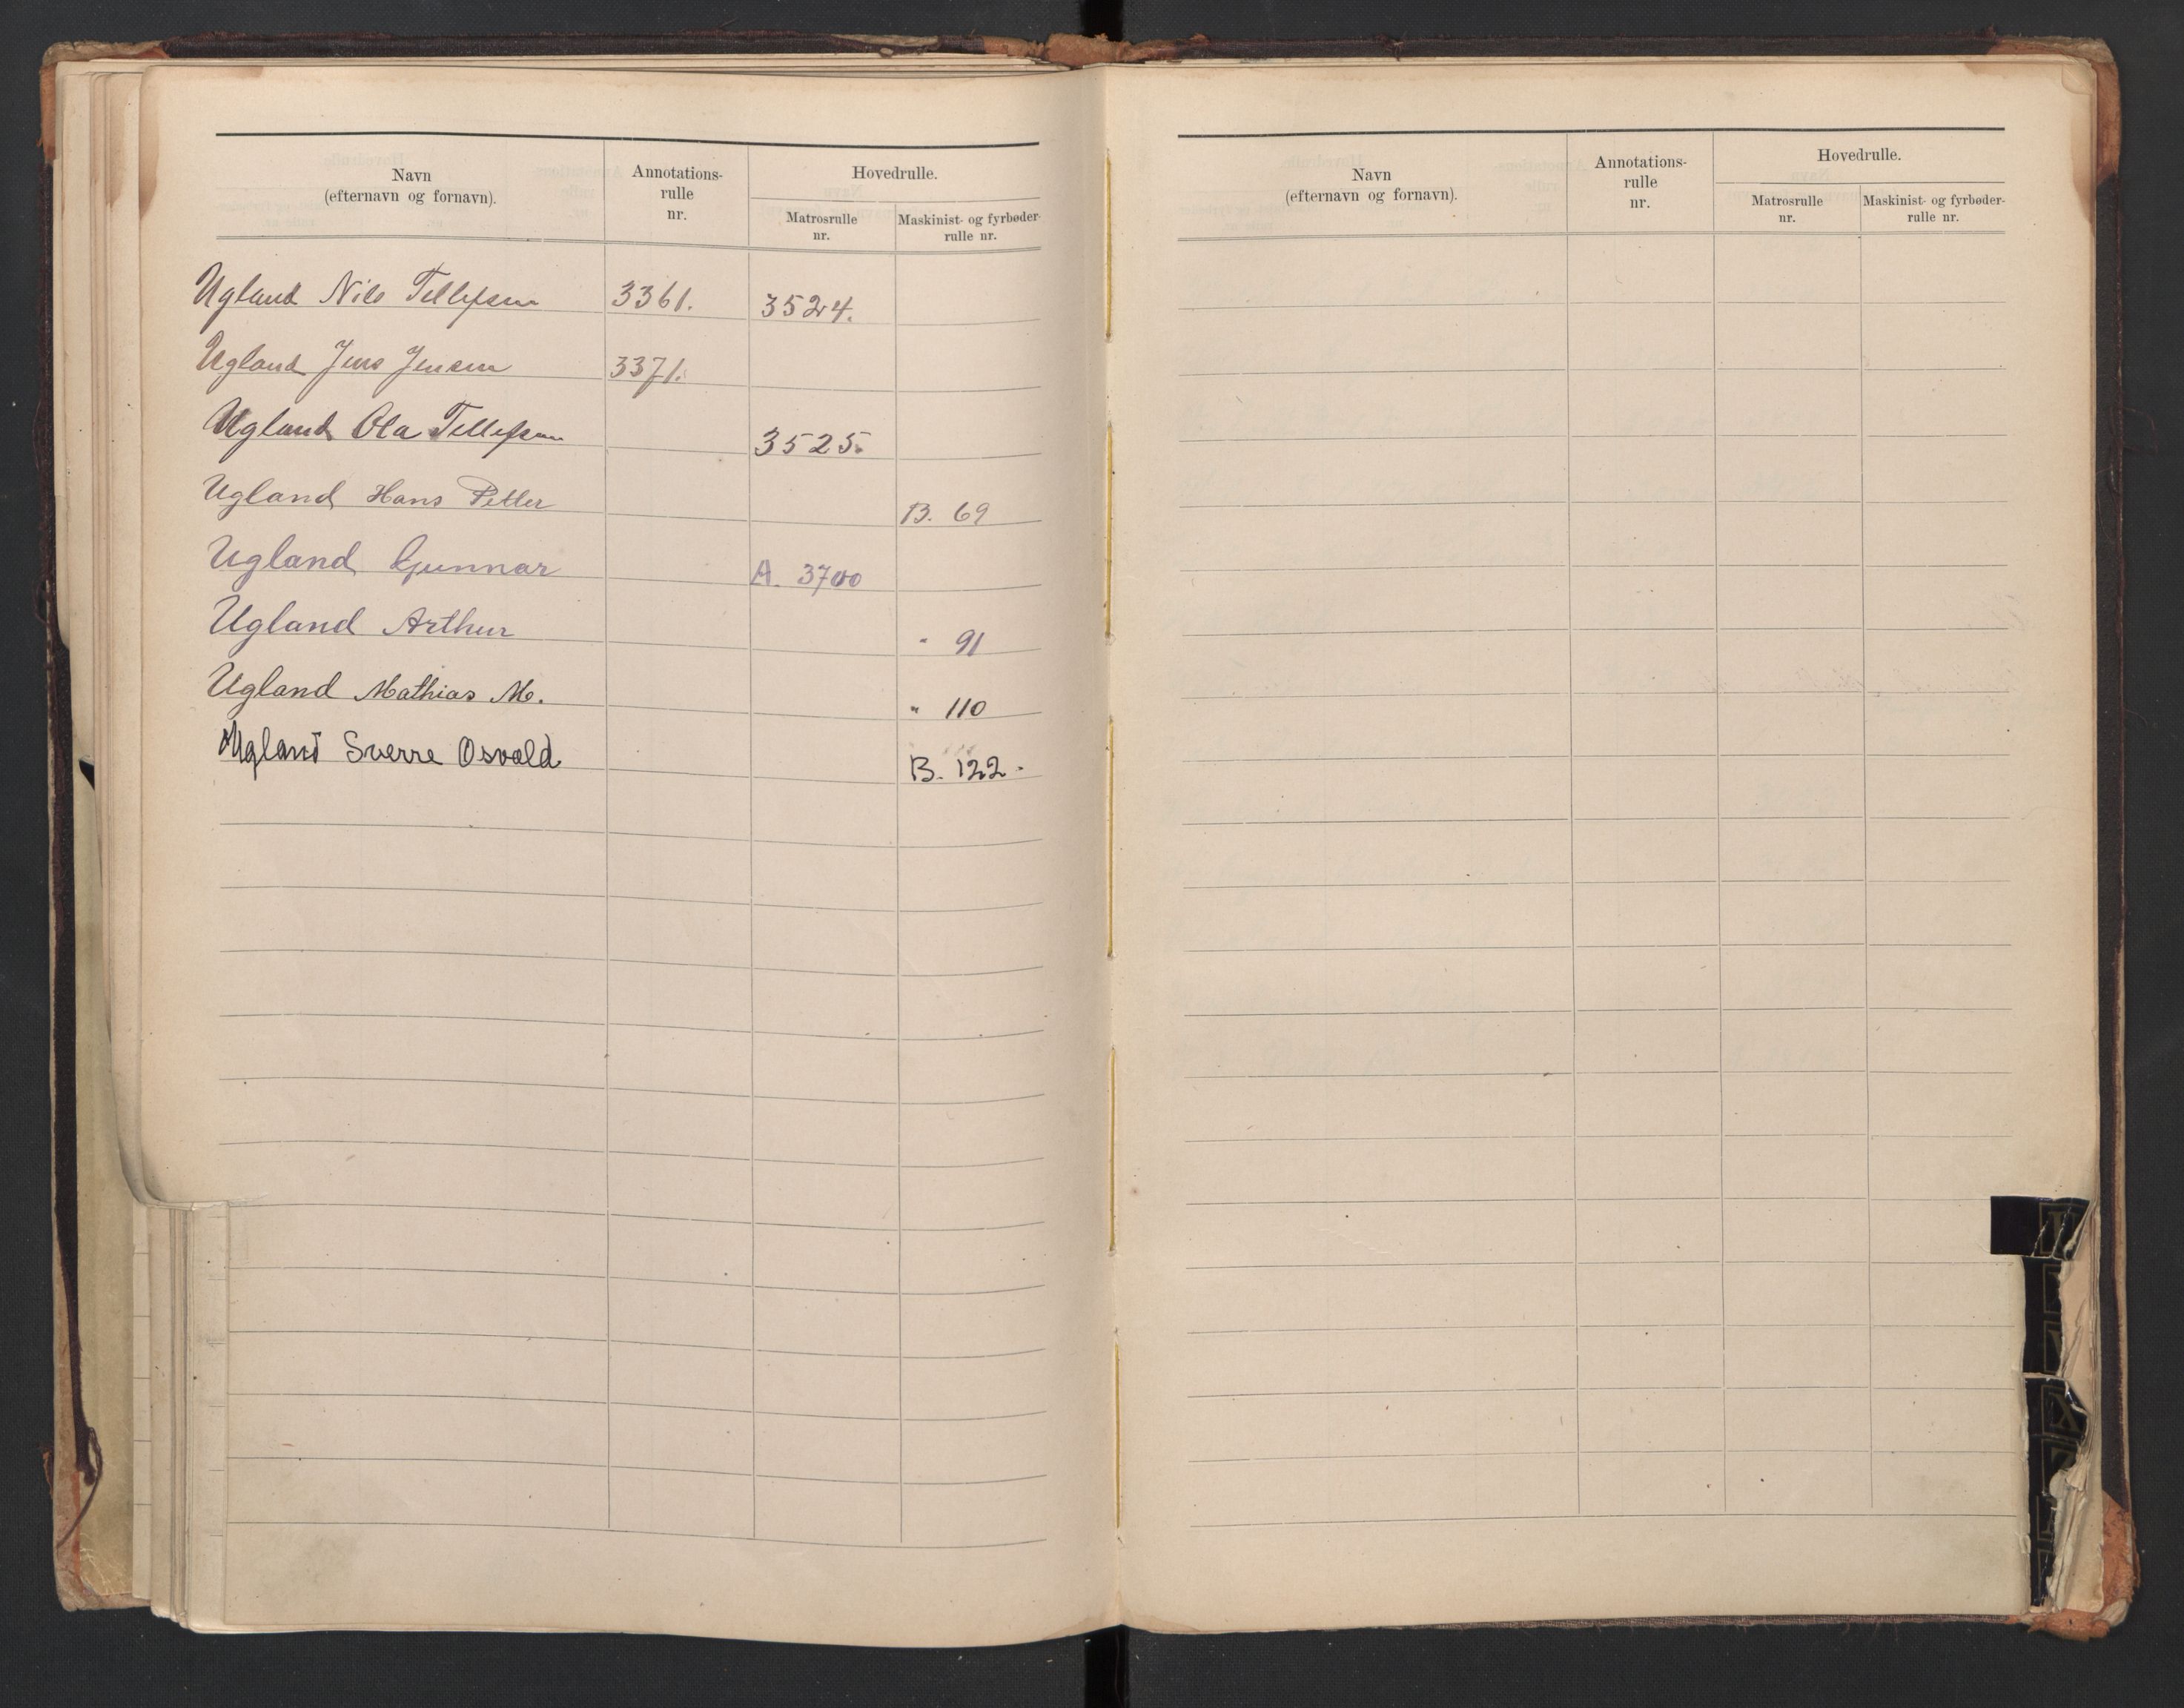 Navn
(efternavn og fornavn).
Annotations-
rulle
nr.
Hovedrulle.
Matrosrulle
nr.
Maskinist- og fyrbøder-
rulle nr.
Ugland Nils Tellefsen 3361. 3524.
Ugland Jens Jensen 3371.
Ugland Ola Tellefsen 3525.
Ugland Hans Petter B. 69
Ugland Gunnar A. 3700
Ugland Arthur " 91
Ugland Mathias M. " 110
Ugland Sverre Osvald B. 122.
Navn
(efternavn og fornavn).
Annotations-
rulle
nr.
Hovedrulle.
Matrosrulle
nr.
Maskinist- og fyrbøder-
rulle nr.
U
X